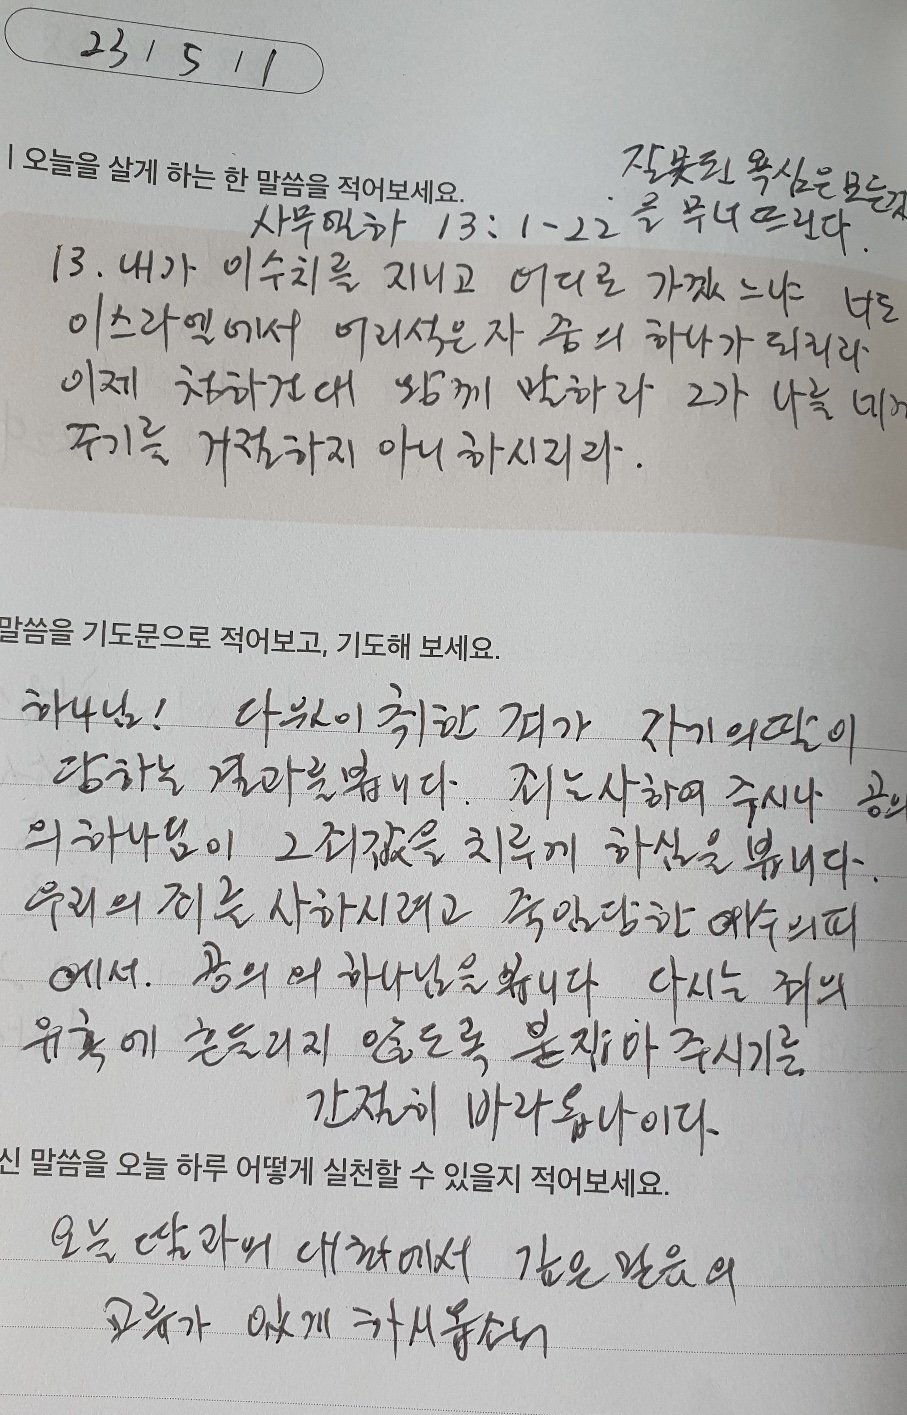 23 / 5 / 1
| 오늘을 살게 하는 한 말씀을 적어보세요.
잘못된 욕심은 모든것
을 무너뜨린다.
사무엘하 13:1-22
13. 내가 이수치를 지니고 어디로 가겠느냐 너도
이스라엘에서 어리석은자 중의 하나가 되리라
이제 청하건대 왕께 말하라 그가 나를 네게
주기를 거절하지 아니하시리라.
말씀을 기도문으로 적어보고, 기도해 보세요.
하나님! 다윗이 취한 죄가 자기의딸이
당하는 결과를봅니다. 죄는사하여 주시나 공의
의하나님이 그죄값을 치루게 하심을 봅니다.
우리의 죄를 사하시려고 죽임당한 예수의피
에서. 공의의 하나님을봅니다 다시는 죄의
유혹에 흔들리지 않도록 붙잡아 주시기를
간절히 바라옵나이다.
신 말씀을 오늘 하루 어떻게 실천할 수 있을지 적어보세요.
오늘 딸과의 대화에서 깊은 믿음의
교류가 있게 하시옵소서